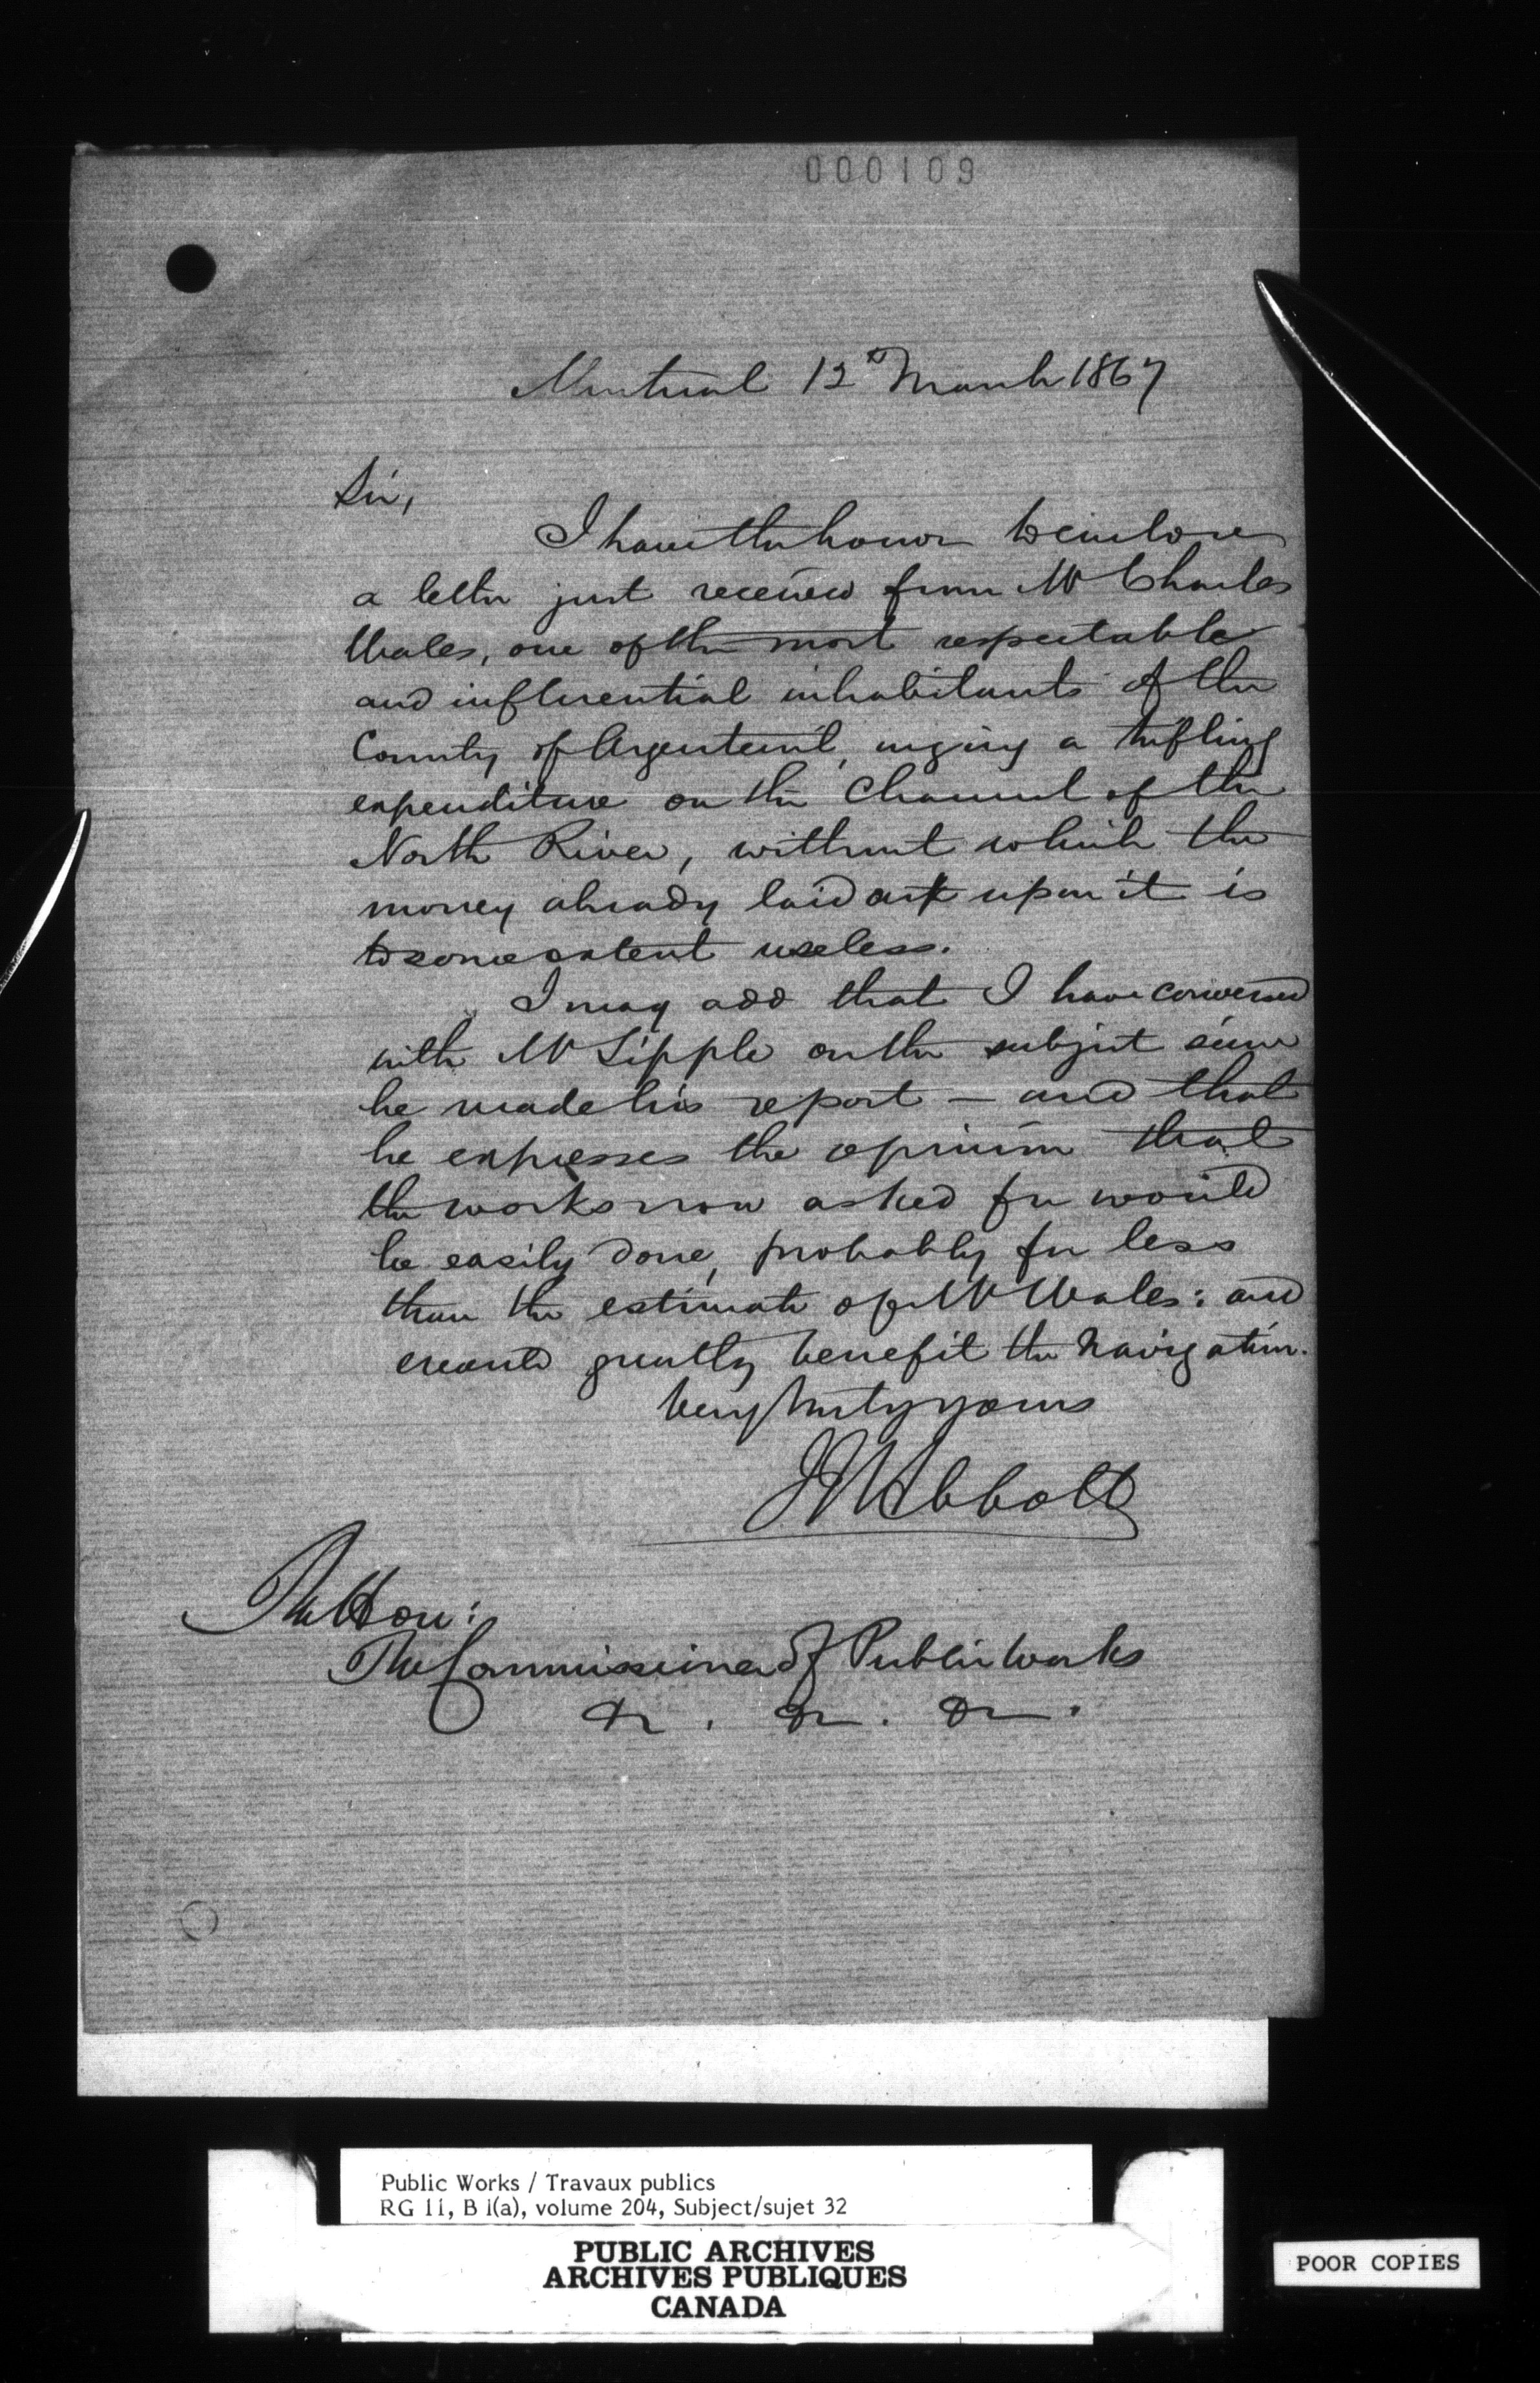 000109
Montreal 12th March 1867
Sir,
I have the honor to inclose
a letter just received from Mr Charles
Wales, one of the most respectable
and influential inhabitants of the
County of Argenteuil, urging a trifling
expenditure on the Channel of the
North River, without which the
money already laid out upon it is
to some extent useless.
I may add that I have conversed
with Mr Sipple on the subject since
he made his report — and that
he expresses the opinion that
the works now asked for would
be easily done, probably for less
than the estimate of Mr Wales: and
would greatly benefit the navigation.
Very truly yours
JJCAbbott
The Hon:
The Commissioner of Public Works
&c. &c. &c.
Public Works / Travaux publics
RG 11, B 1(a), volume 204, Subject/sujet 32
PUBLIC ARCHIVES
ARCHIVES PUBLIQUES
CANADA
POOR COPIES